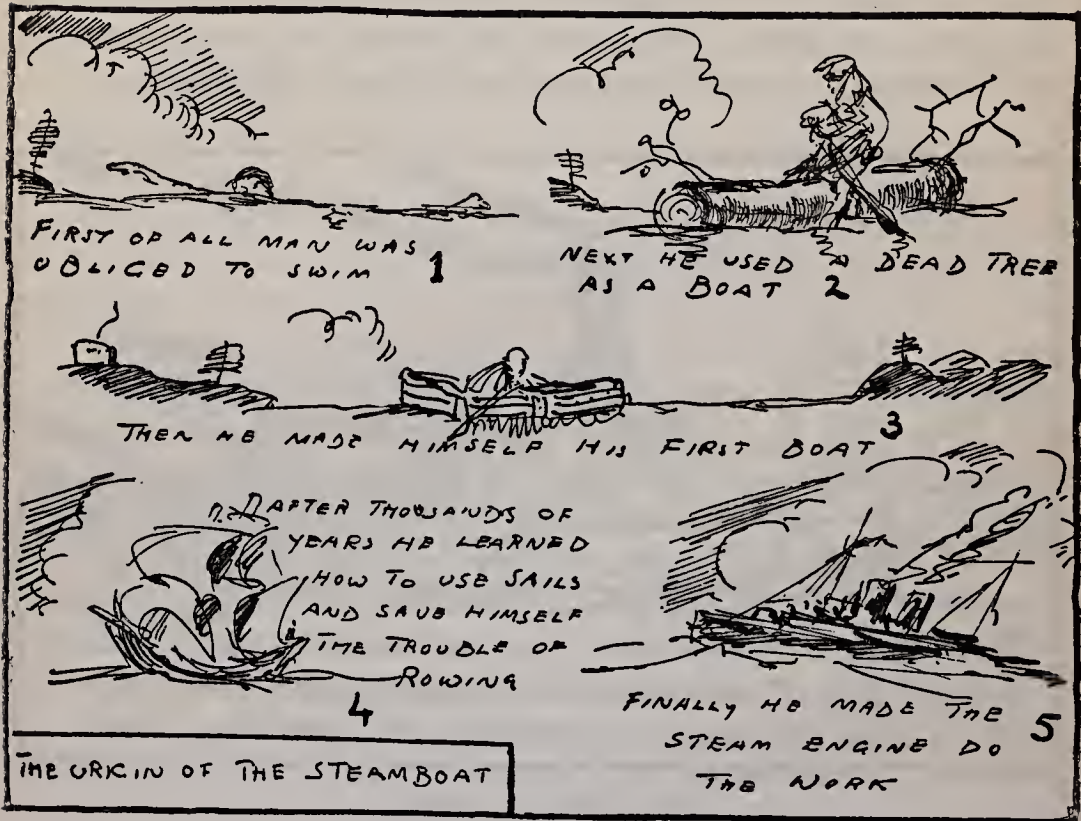 FIRST OF ALL MAN WAS
OBLIGED TO SWIM
1
NEXT HE USED A DEAD TREE
AS A BOAT 2
THEN HE MADE HIMSELF HIS FIRST BOAT
3
AFTER THOUSANDS OF
YEARS HE LEARNED
HOW TO USE SAILS
AND SAVE HIMSELF
THE TROUBLE OF
ROWING
4
FINALLY HE MADE THE
STEAM ENGINE DO
THE WORK
5
THE ORIGIN OF THE STEAMBOAT